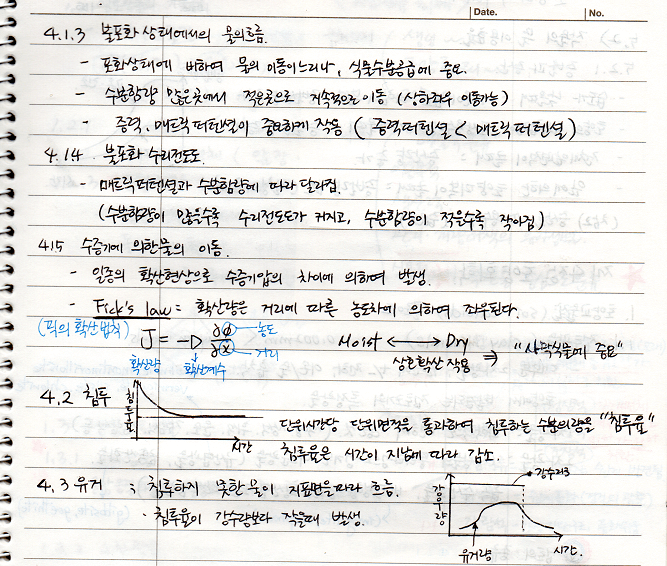 Date.
No.
4.1.3 불포화 상태에서의 물의흐름.
- 포화상태에 비하여 물의 이동이느리나, 식물수분공급에 중요.
- 수분함량 많은곳에서 적은곳으로 지속적으로 이동 (상하좌우 이동가능)
- 중력, 매트릭퍼텐셜이 중요하게 작용 (중력퍼텐셜 < 매트릭퍼텐셜)
4.1.4 불포화 수리전도도.
- 매트릭퍼텐셜과 수분함량에 따라 달라짐.
(수분함량이 많을수록 수리전도도가 커지고, 수분함량이 적을수록 작아짐)
4.1.5 수증기에 의한 물의 이동.
- 일종의 확산현상으로 수증기압의 차이에 의하여 발생.
- Fick's law = 확산량은 거리에 따른 농도차에 의하여 좌우된다.
(픽의 확산법칙) J = -D ∂c/∂x 농도 거리
확산량 확산계수
Moist ↔ Dry ⇒ "사막식물에 중요"
상호확산 작용
4.2 침투
침투율
시간
단위시간당 단위면적을 통과하여 침투하는 수분의량을 "침투율"
침투율은 시간이 지남에 따라 감소.
4.3 유거 ; 침투하지 못한 물이 지표면을따라 흐름.
· 침투율이 강수량보다 작을때 발생.
강우량
강수크기
유거량
시간.